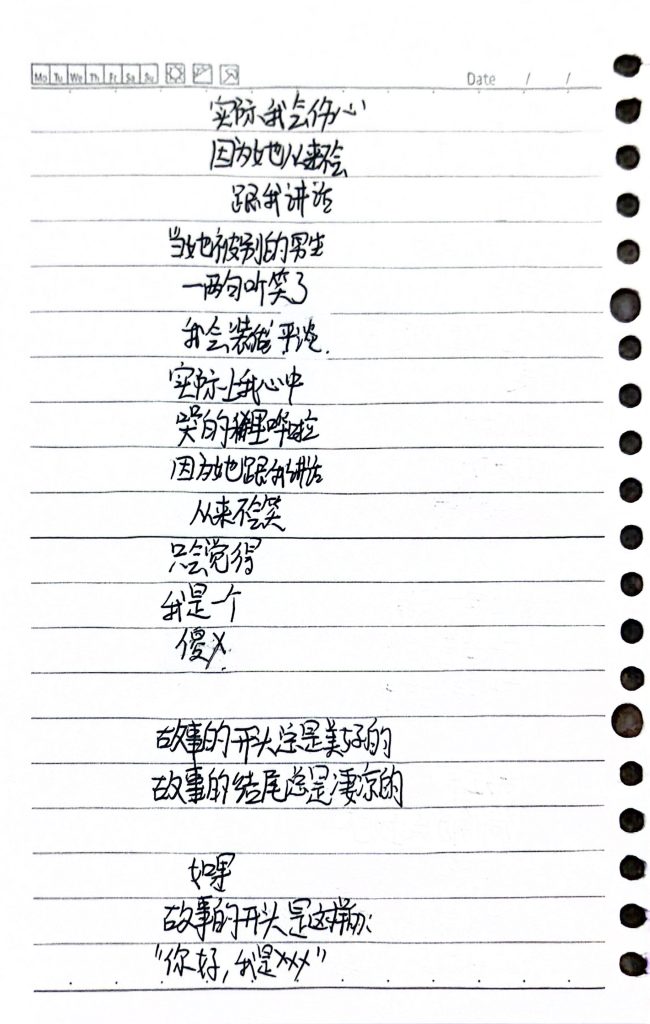 Mo Tu We Th Fr Sa Su Date / /
实际我会伤心
因为她从来不会
跟我讲话
当她被别的男生
一两句听笑了
我会装做平淡.
实际上我心中
哭的稀里哗啦
因为她跟我讲话
从来不会笑
只会觉得
我是一个
傻X.
故事的开头总是美好的
故事的结尾总是凄凉的
如果
故事的开头是这样的:
“你好,我是XXX”